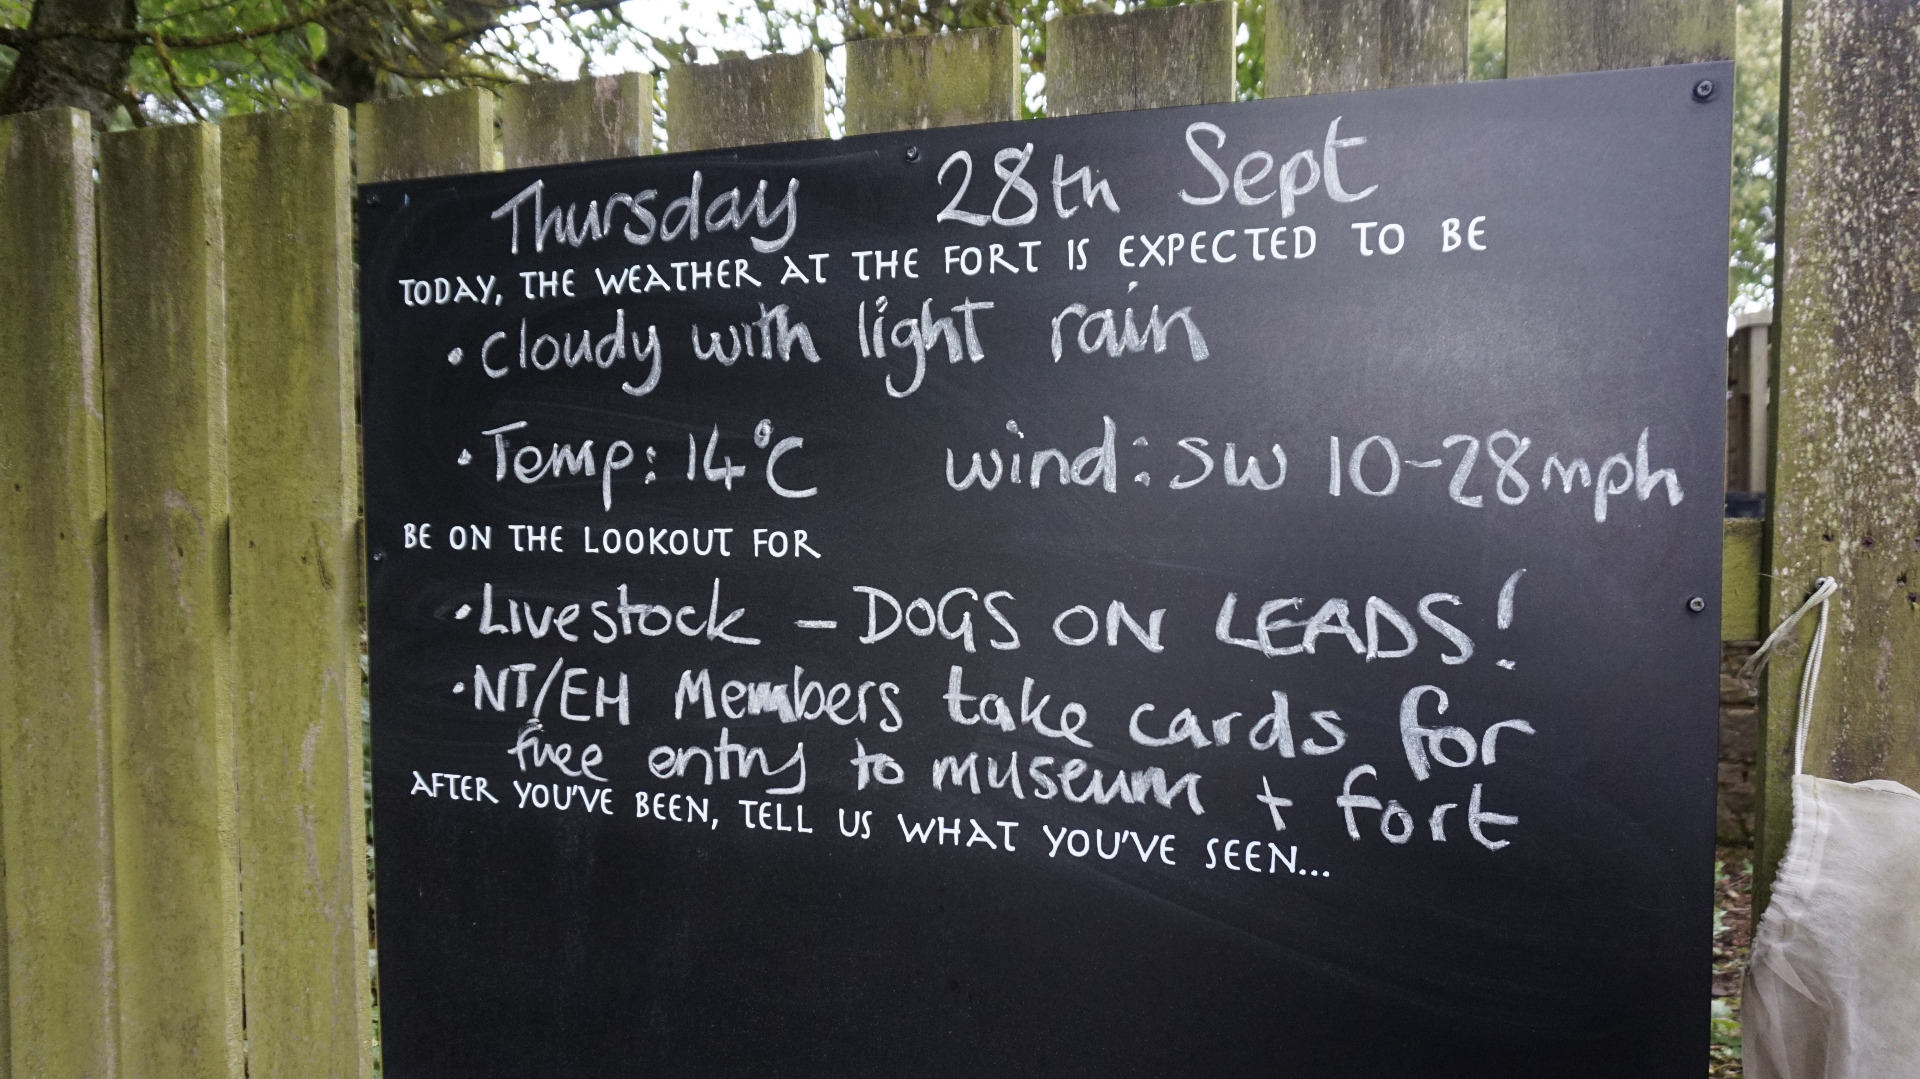 Thursday 28th Sept
TODAY, THE WEATHER AT THE FORT IS EXPECTED TO BE
• Cloudy with light rain
• Temp: 14°C wind: SW 10-28mph
BE ON THE LOOKOUT FOR
• Livestock - DOGS ON LEADS!
• NT/EH Members take cards for
free entry to museum + fort
AFTER YOU'VE BEEN, TELL US WHAT YOU'VE SEEN...